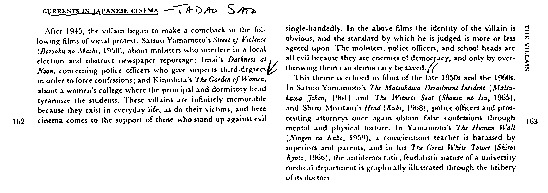 CURRENTS IN JAPANESE CINEMA — TADAO SATO
After 1945, the villain began to make a comeback in the fol-
lowing films of social protest. Satsuo Yamamoto's Street of Violence
(Boryoku no Machi, 1950), about mobsters who interfere in a local
election and obstruct newspaper reportage; Imai's Darkness at
Noon, concerning police officers who give suspects third-degrees
in order to force confessions; and Kinoshita's The Garden of Women,
about a women's college where the principal and dormitory head
tyrannize the students. These villains are infinitely memorable
because they exist in everyday life, as do their victims, and here
cinema comes to the support of those who stand up against evil
162
single-handedly. In the above films the identity of the villain is
obvious, and the standard by which he is judged is more or less
agreed upon. The mobsters, police officers, and school heads are
all evil because they are enemies of democracy, and only by over-
throwing them can democracy be saved.
This theme is echoed in films of the late 1950s and the 1960s.
In Satsuo Yamamoto's The Matsukawa Derailment Incident (Matsu-
kawa Jiken, 1961) and The Witness Seat (Shonin no Isu, 1965),
and Shiro Moritani's Head (Kubi, 1968), police officers and pros-
ecuting attorneys once again obtain false confessions through
mental and physical torture. In Yamamoto's The Human Wall
(Ningen no Kabe, 1959), a conscientious teacher is harassed by
superiors and parents, and in his The Great White Tower (Shiroi
Kyoto, 1966), the antidemocratic, feudalistic nature of a university
medical department is graphically illustrated through the bribery
of its doctors.
THE VILLAIN
163